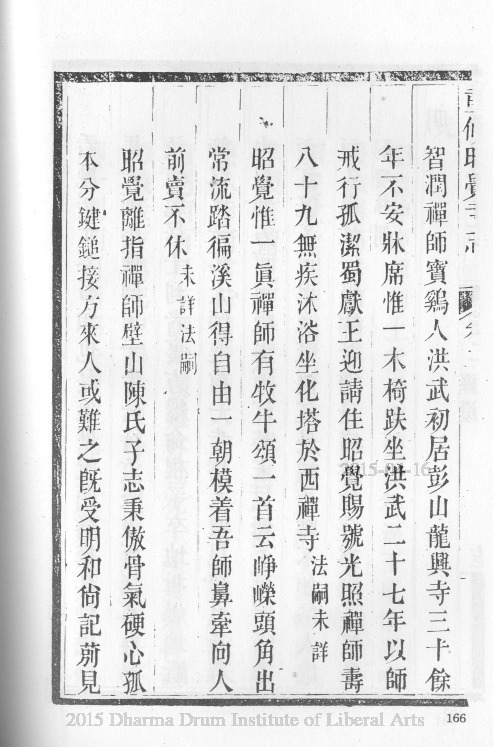 重修昭覺寺志 卷二
智潤禪師寶鷄人洪武初居彭山龍興寺三十餘
年不安牀席惟一木椅趺坐洪武二十七年以師
戒行孤潔蜀獻王迎請住昭覺賜號光照禪師壽
八十九無疾沐浴坐化塔於西禪寺 法嗣未詳
昭覺惟一眞禪師有牧牛頌一首云崢嶸頭角出
常流踏徧溪山得自由一朝模着吾師鼻牽向人
前賣不休 未詳法嗣
昭覺離指禪師壁山陳氏子志秉傲骨氣硬心孤
本分鍵鎚接方來人或難之旣受明和尙記莂見
2015-04-16
2015 Dharma Drum Institute of Liberal Arts
166